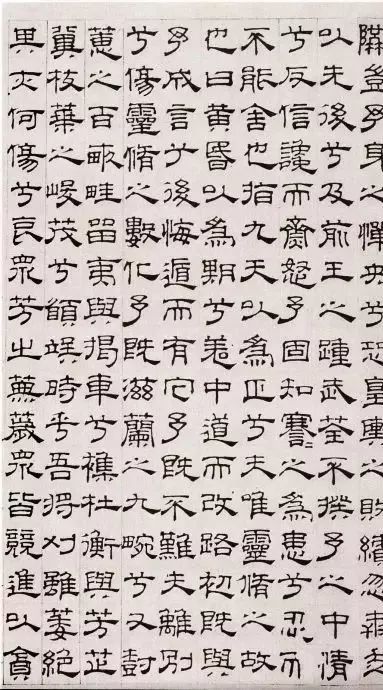 隘豈予身之憚殃兮恐皇輿之敗績忽奔走
以先後兮及前王之踵武荃不揆予之中情
兮反信讒而齌怒予固知謇〻之為患兮忍而
不能舍也指九天以為正兮夫唯靈脩之故
也曰黃昏以為期兮羌中道而改路初既與
予成言兮後悔遁而有它予既不難夫離別
兮傷靈脩之數化予既滋蘭之九畹兮又樹
蕙之百畝畦留夷與揭車兮襍杜衡與芳芷
冀枝葉之峻茂兮願竢時乎吾將刈雖萎絕
其亦何傷兮哀眾芳之蕪薉眾皆競進以貪